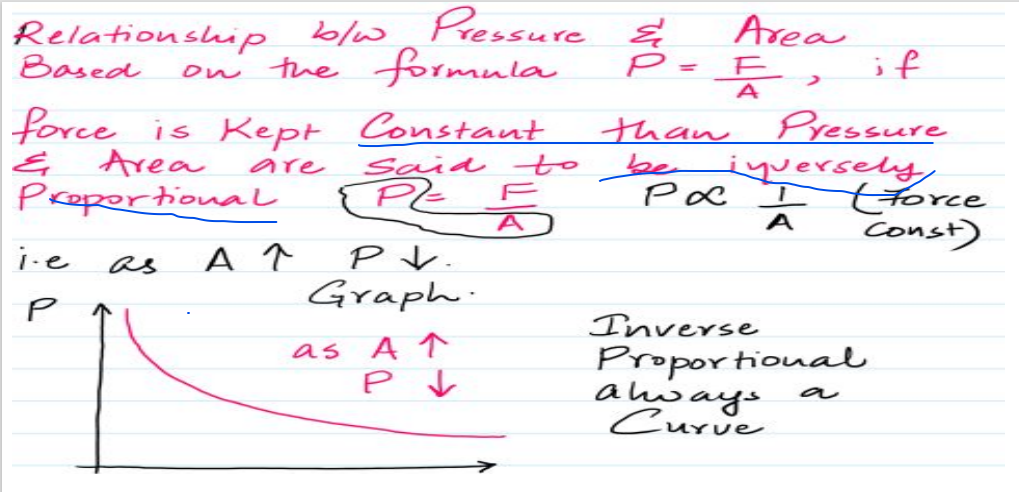 Relationship b/w Pressure & Area
Based on the formula P = F/A, if
force is Kept Constant than Pressure
& Area are said to be inversely
Proportional P = F/A P ∝ 1/A (Force
Const)
i.e as A ↑ P ↓.
Graph.
P
as A ↑
P ↓
Inverse
Proportional
always a
Curve